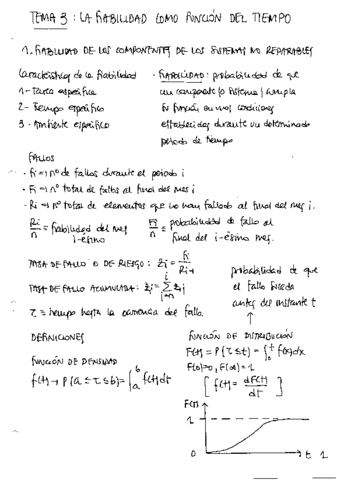 TEMA 3: LA FIABILIDAD COMO FUNCIÓN DEL TIEMPO
1. FIABILIDAD DE LOS COMPONENTES DE LOS SISTEMAS NO REPARABLES
Características de la fiabilidad
1- Tarea específica
2- Tiempo específico
3- Ambiente específico
· FIABILIDAD: probabilidad de que
un componente (o sistema) cumpla
su función en unas condiciones
establecidas durante un determinado
periodo de tiempo
FALLOS
· fi → nº de fallos durante el periodo i
· Fi → nº total de fallos al final del mes i.
· Ri → nº total de elementos que no han fallado al final del mes i.
Ri/n = fiabilidad del mes i-ésimo
Fi/n = probabilidad de fallo al final del i-ésimo mes.
TASA DE FALLO O DE RIESGO: Zi = fi/Ri-1
TASA DE FALLO ACUMULADA: Zi = Σ Zj
τ = tiempo hasta la ocurrencia del fallo.
probabilidad de que
el fallo suceda
antes del instante t
DEFINICIONES
FUNCIÓN DE DENSIDAD
f(t) → P(a ≤ τ ≤ b) = ∫ₐᵇ f(t)dt
FUNCIÓN DE DISTRIBUCIÓN
F(t) = P(τ ≤ t) = ∫₀ᵗ f(x)dx
F(0) = 0, F(∞) = 1
[f(t) = dF(t)/dt]
F(t)
1
0
t
1